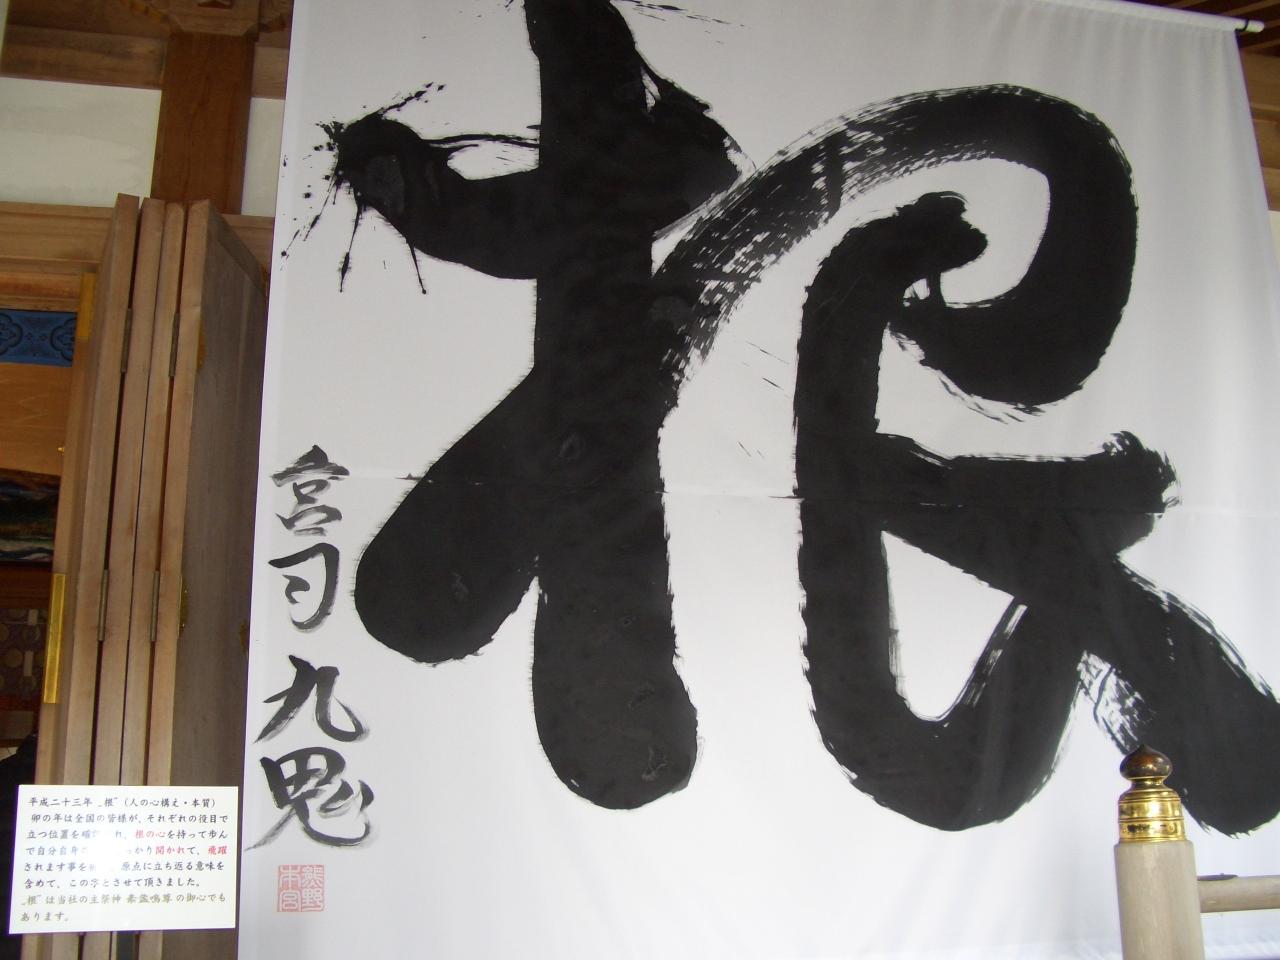 根
宮司 九鬼
熊野
本宮
平成二十三年 〝根〟(人の心構え・本質)
卯の年は全国の皆様が、それぞれの役目で
立つ位置を確 れ、根の心を持って歩ん
で自分自身 っかり開かれて、飛躍
されます事を祈 原点に立ち返る意味を
含めて、この字とさせて頂きました。
〝根〟は当社の主祭神 素盞嗚尊の御心でも
あります。